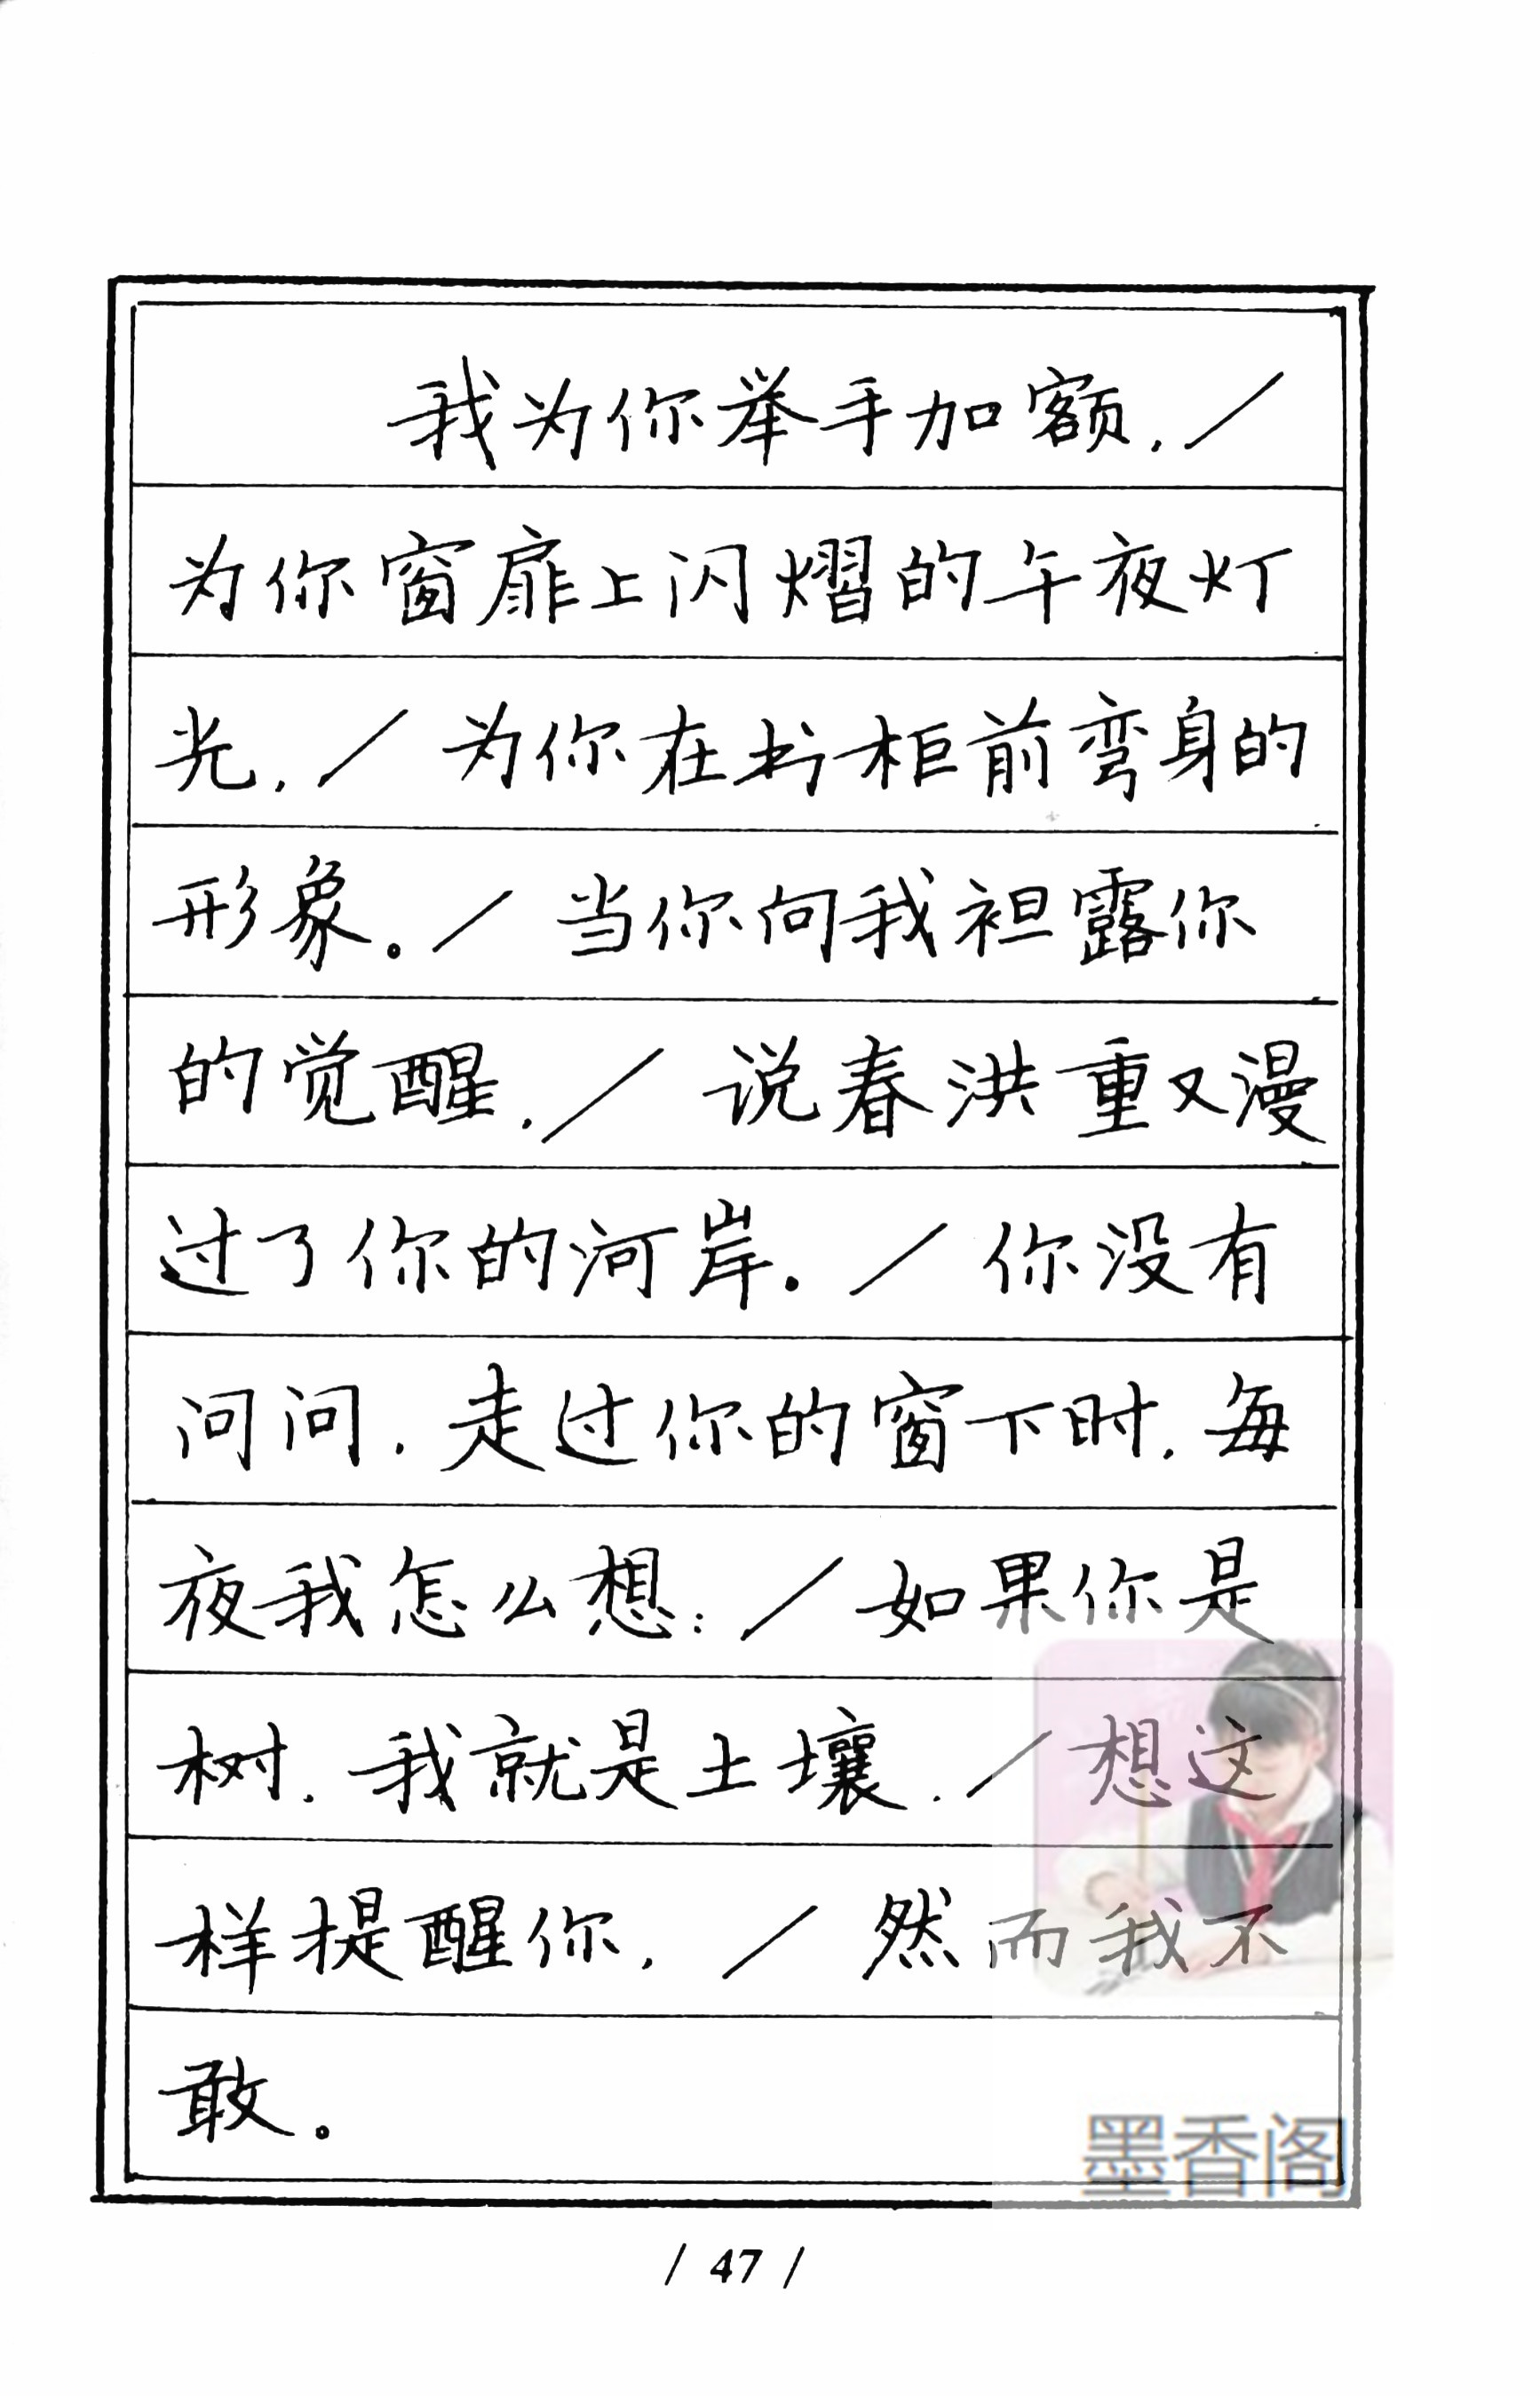 我为你举手加额，/
为你窗扉上闪熠的午夜灯
光，/ 为你在书柜前弯身的
形象。/ 当你向我袒露你
的觉醒，/ 说春洪重又漫
过了你的河岸。/ 你没有
问问，走过你的窗下时，每
夜我怎么想：/ 如果你是
树，我就是土壤，/ 想这
样提醒你，/ 然而我不
敢。
墨香阁
/ 47 /